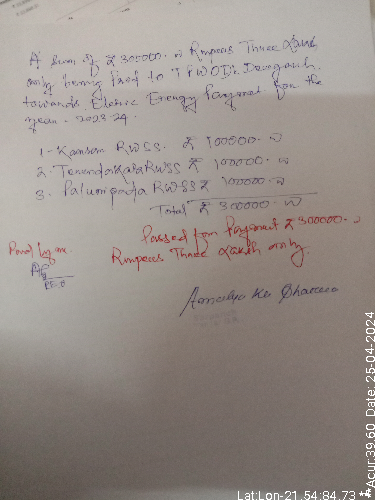 A sum of ₹ 300000.00 Rupees Three Lakh
only being Paid to TPWODL Deogarh
towards Eletric Energy Payment for the
year - 2023-24.
1 - Kansar RWSS. ₹ 100000.00
2. RWSS ₹ 100000.00
3. RWSS ₹ 100000.00
Total ₹ 300000.00
Passed for Payment ₹ 300000.00
Rupees Three Lakh only
Paid by me
Amulya Ku
Lat:Lon-21.54:84.73 **Acur:39.60 Date: 25-04-2024